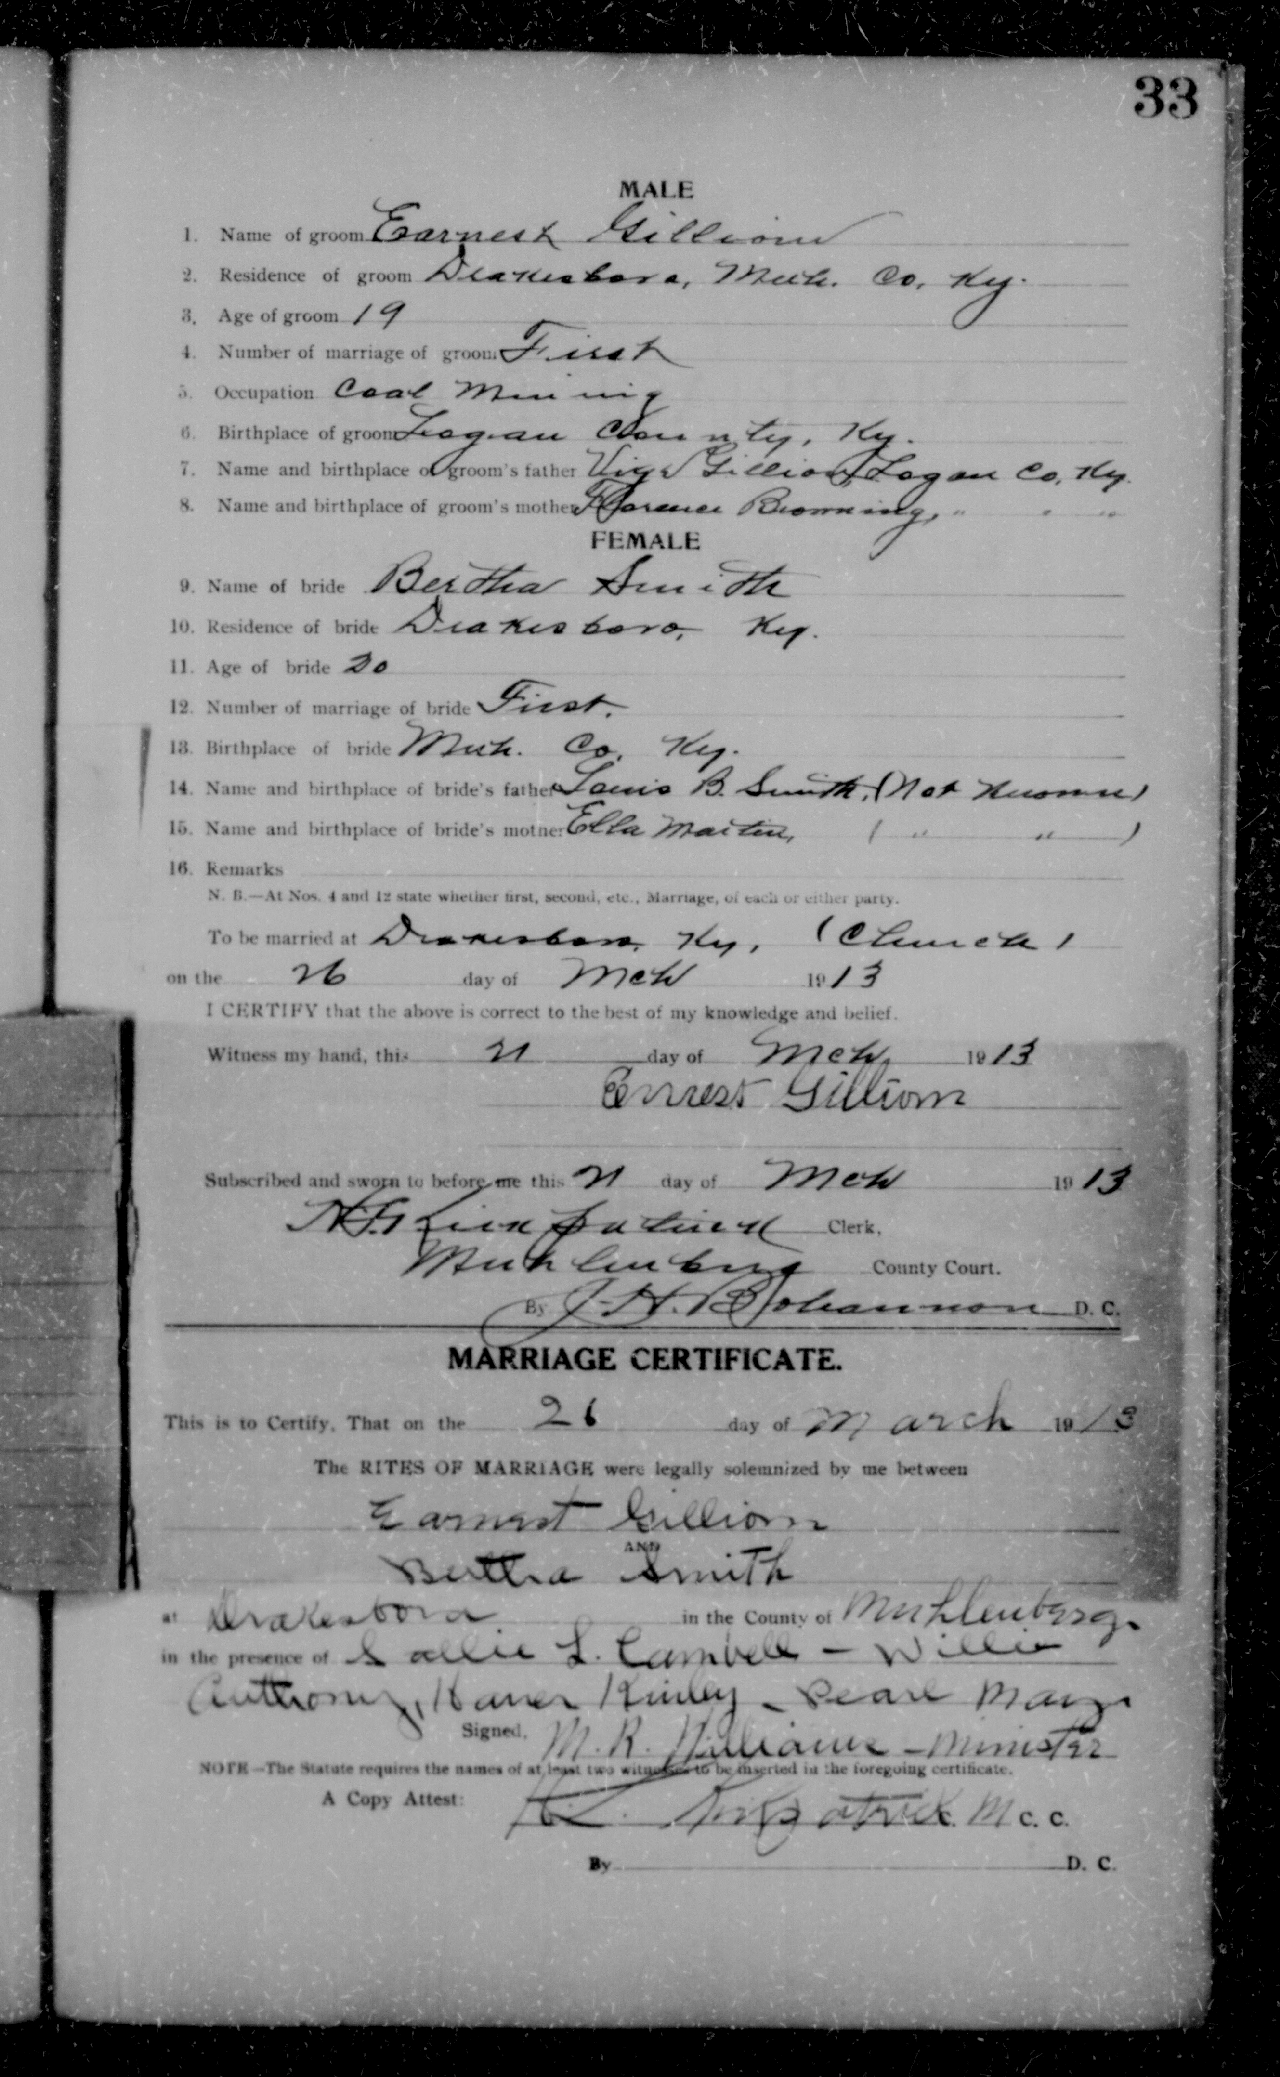 33
MALE
1. Name of groom Earnest Gilliom
2. Residence of groom Drakesboro, Muh. Co. Ky.
3. Age of groom 19
4. Number of marriage of groom First
5. Occupation Coal Mining
6. Birthplace of groom Logan County, Ky.
7. Name and birthplace of groom's father Gilliom, Logan Co, Ky.
8. Name and birthplace of groom's mother Florence Browning, " " "
FEMALE
9. Name of bride Bertha Smith
10. Residence of bride Drakesboro, Ky.
11. Age of bride 20
12. Number of marriage of bride First.
13. Birthplace of bride Muh. Co. Ky.
14. Name and birthplace of bride's father Louis B. Smith, (Not Known)
15. Name and birthplace of bride's mother Ella Martin, ( " " )
16. Remarks
N. B.—At Nos. 4 and 12 state whether first, second, etc., Marriage, of each or either party.
To be married at Drakesboro, Ky, (Church)
on the 26 day of Mch 1913
I CERTIFY that the above is correct to the best of my knowledge and belief.
Witness my hand, this 21 day of Mch, 1913
Ernest Gilliom
Subscribed and sworn to before me this 21 day of Mch 1913
Kirkpatrick Clerk,
Muhlenberg County Court.
By J. H. Bohannon D. C.
MARRIAGE CERTIFICATE.
This is to Certify, That on the 26 day of March 1913
The RITES OF MARRIAGE were legally solemnized by me between
Earnest Gilliom
AND
Bertha Smith
at Drakesboro in the County of Muhlenberg
in the presence of Sallie L. Cambell - Willie
Anthony, Kinley - Pearl
Signed, M. R. Williams - Minister
NOTE—The Statute requires the names of at least two witnesses to be inserted in the foregoing certificate.
A Copy Attest: Kirkpatrick M C. C.
By D. C.